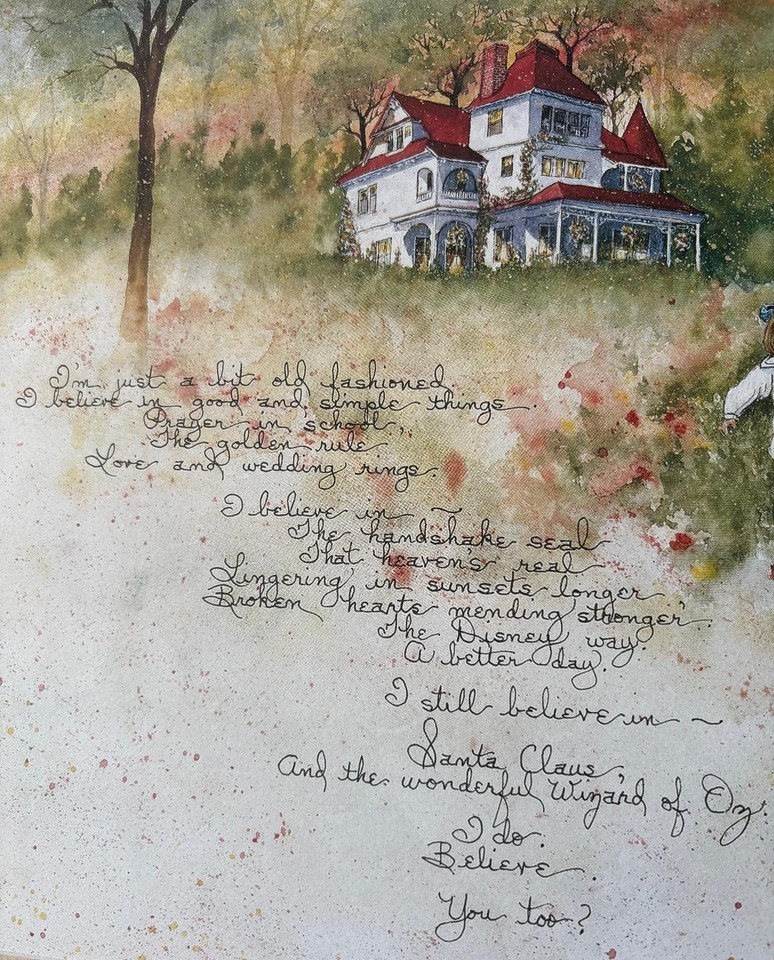 I'm just a bit old fashioned.
I believe in good and simple things.
Prayer in school,
The golden rule
Love and wedding rings.
I believe in ~
The handshake seal
That heaven's real
Lingering in sunsets longer
Broken hearts mending stronger.
The Disney way.
A better day.
I still believe in ~
Santa Claus,
And the wonderful Wizard of Oz.
I do.
Believe.
You too?